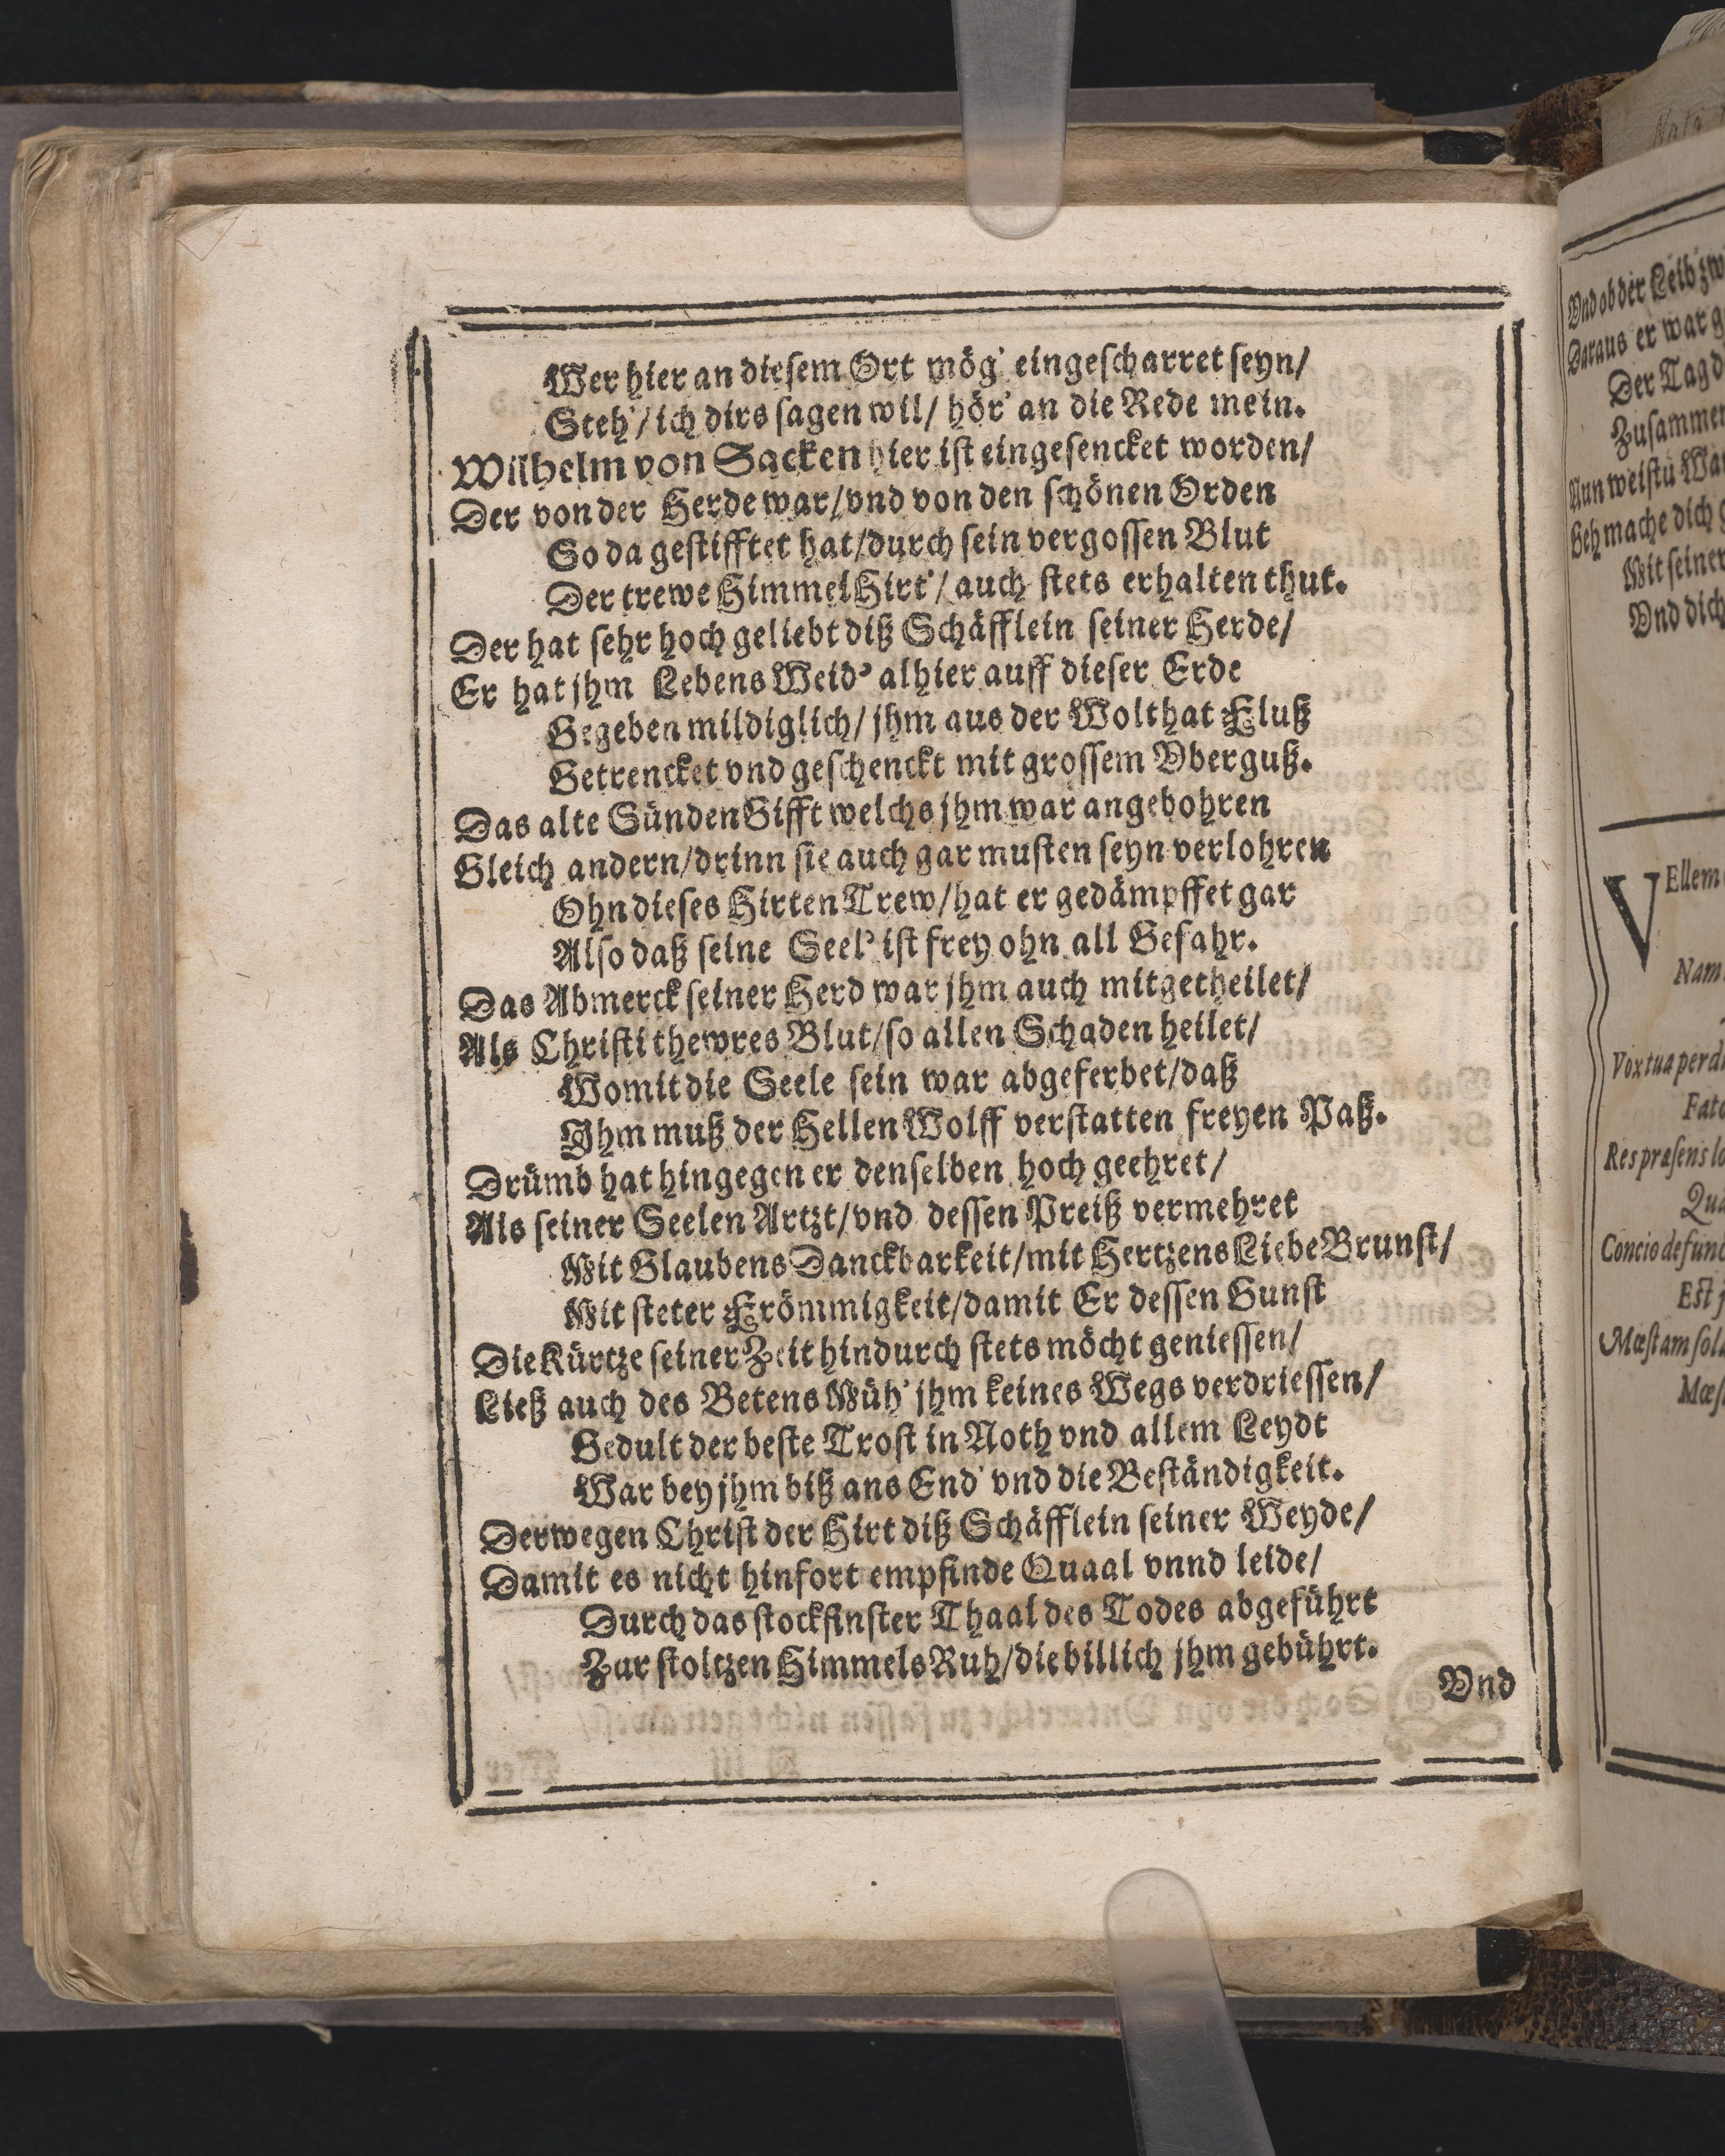 Wer hier an diesem Ort mög' eingescharret seyn/
Steh'/ich dirs sagen wil/ hör' an die Rede mein.
Wilhelm von Sacken hier ist eingesencket worden/
Der von der Herde war/vnd von den schönen Orden
So da gestifftet hat/durch sein vergossen Blut
Der trewe HimmelHirt'/ auch stets erhalten thut.
Der hat sehr hoch geliebt diß Schäfflein seiner Herde/
Er hat jhm LebensWeid' alhier auff dieser Erde
Gegeben mildiglich/ jhm aus der Wolthat Fluß
Getrencket vnd geschenckt mit grossem Vberguß.
Das alte SündenGifft welchs jhm war angebohren
Gleich andern/drinn sie auch gar musten seyn verlohren
Ohn dieses Hirten Trew/hat er gedämpffet gar
Also daß seine Seel' ist frey ohn all Gefahr.
Das Abmerck seiner Herd war jhm auch mitgetheilet/
Als Christi thewres Blut/so allen Schaden heilet/
Womit die Seele sein war abgeferbet/daß
Ihm muß der HellenWolff verstatten freyen Paß.
Drümb hat hingegen er denselben hoch geehret/
Als seiner Seelen Artzt/vnd dessen Preiß vermehret
Mit Glaubens Danckbarkeit/mit Hertzens LiebeBrunst/
Mit steter Frömmigkeit/damit Er dessen Gunst
Die Kürtze seiner Zeit hindurch stets möcht geniessen/
Ließ auch des Betens Müh' jhm keines Wegs verdriessen/
Gedult der beste Trost in Noth vnd allem Leydt
War bey jhm biß ans End' vnd die Beständigkeit.
Derwegen Christ der Hirt diß Schäfflein seiner Weyde/
Damit es nicht hinfort empfinde Quaal vnnd leide/
Durch das stockfinster Thaal des Todes abgeführt
Zur stoltzen HimmelsRuh/die billich jhm gebührt.
Vnd
Vnd ob der Leib
Daraus er war
Der Tag
Zusammen
Nun weistu
Geh mache dich
Mit seiner
Vnd dich
VEllem
Nam
Vox tua
Fato
Res præsens
Concio
Est
Mœstam